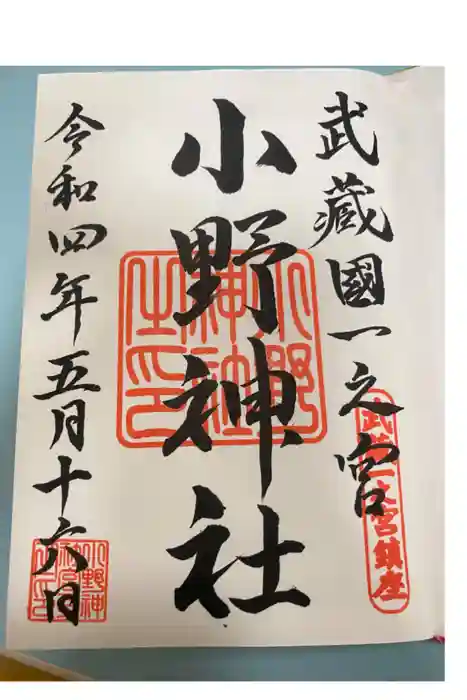 武藏國一之宮
武蔵一之宮鎮座
小野神社
小野神社之印
令和四年五月十六日